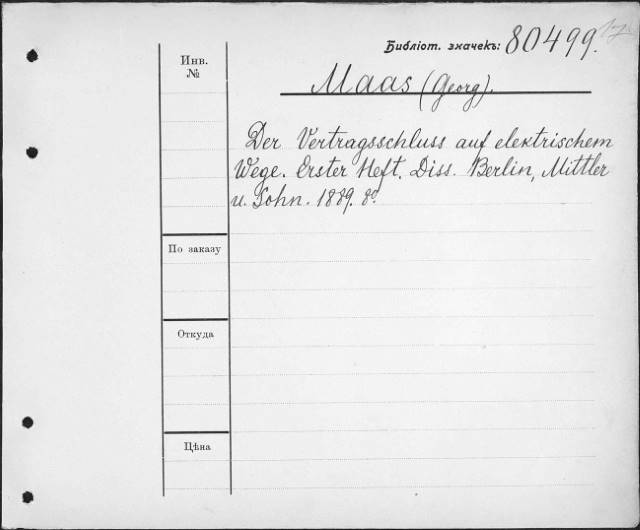 Библіот. значекъ: 80499.
Инв.
№
Maas (Georg).
Der Vertragsschluss auf elektrischem
Wege. Erster Heft. Diss. Berlin, Mittler
u. Sohn. 1889. 8º.
По заказу
Откуда
Цѣна